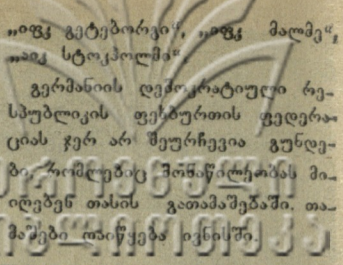 „იფკ გეტებორგი“, „იფკ მალმე“,
„აიკ სტოკჰოლმი“.
გერმანიის დემოკრატიული რე-
სპუბლიკის ფეხბურთის ფედერა-
ციას ჯერ არ შეურჩევია გუნდე-
ბი, რომლებიც მონაწილეობას მი-
იღებენ თასის გათამაშებაში. თა-
მაშები დაიწყება ივნისში.